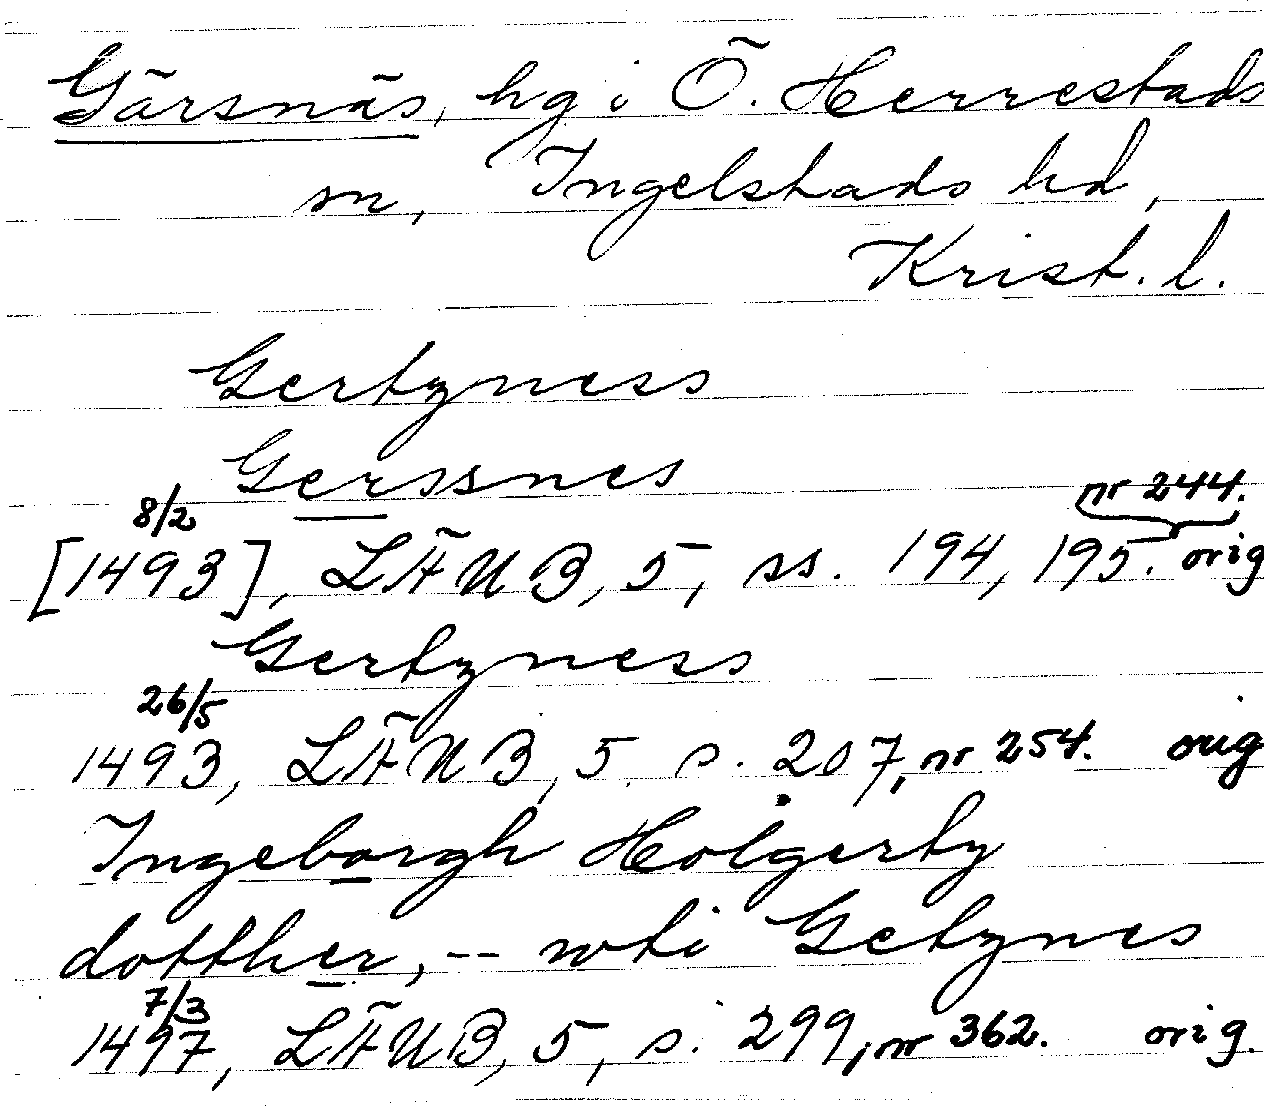 Gärsnäs, hg i Ö. Herrestads
sn, Ingelstads hd,
Krist. l.
Gertzness
Gerssnes
8/2 nr 244.
[1493], LÄUB, 5, ss. 194, 195. orig
Gertzness
26/5
1493, LÄUB, 5 s. 207, nr 254. orig
Ingeborgh Holgertz
dotther, -- wti Getznes
7/3
1497, LÄUB, 5, s. 299, nr 362. orig.